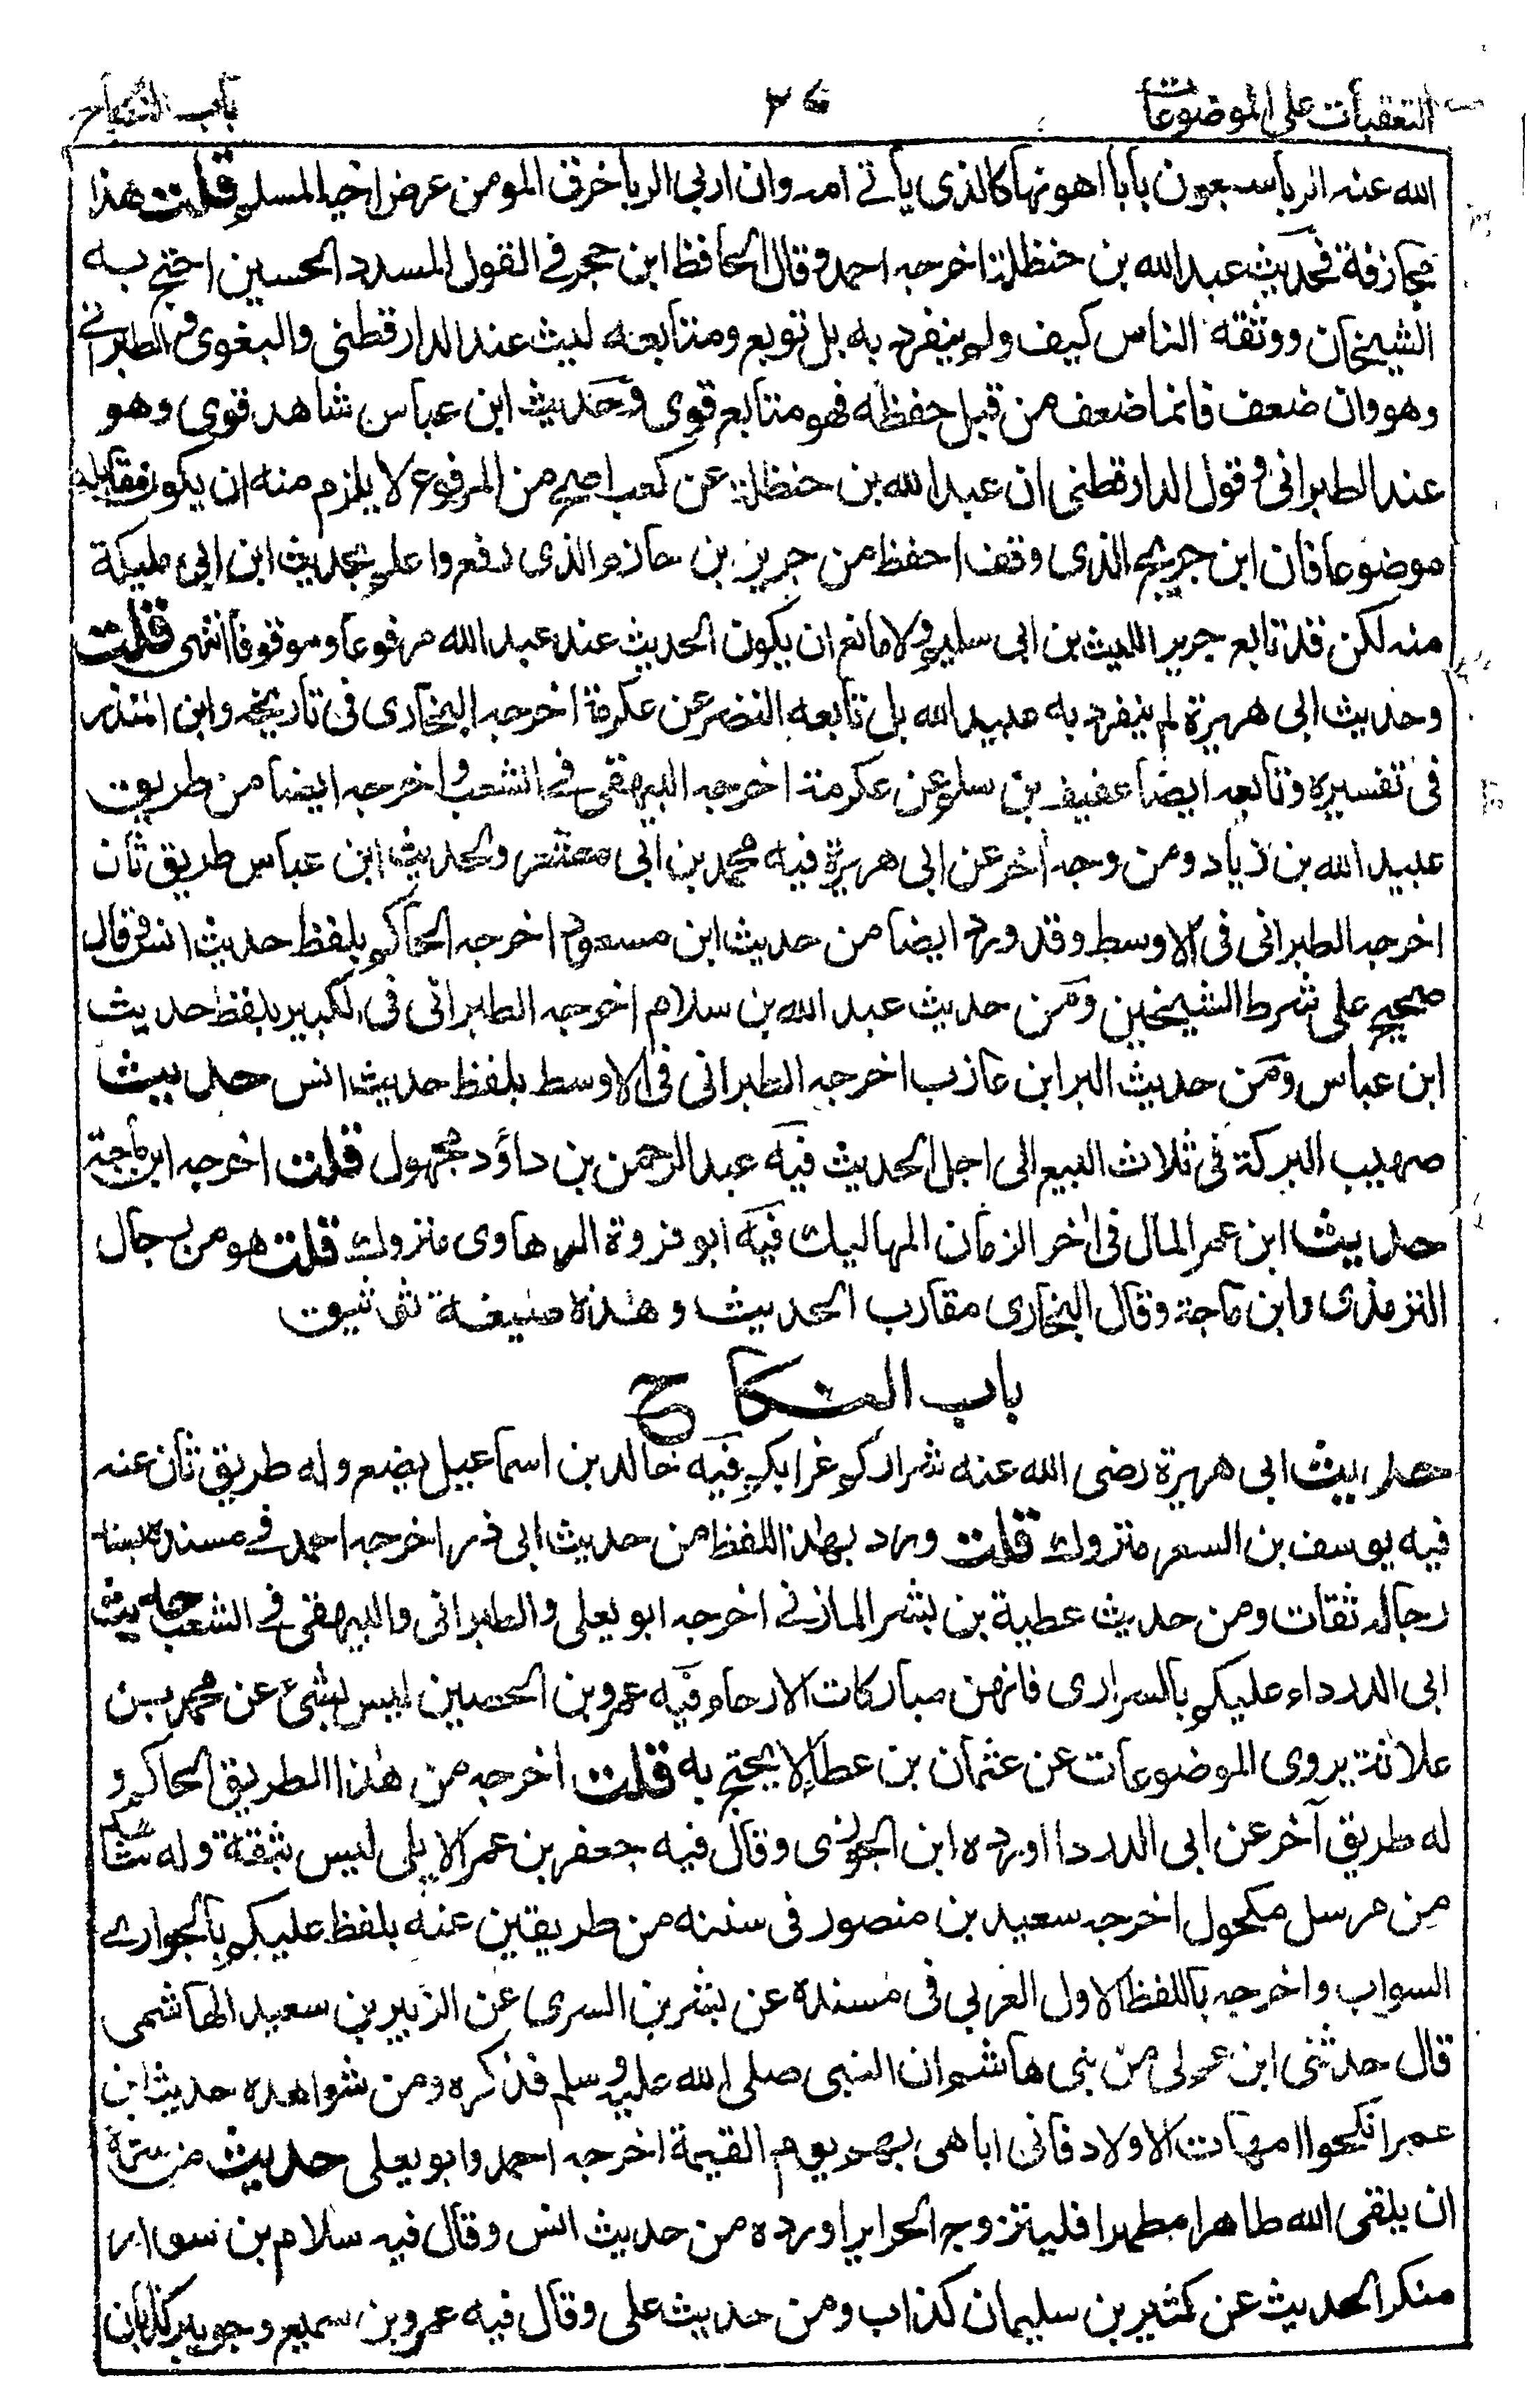 التعقبات على الموضوعات
باب النكاح
الله عنه الربا سبعون بابا اهونها كالذى يأتے امه وان اربى الربا خرق المومن عرض اخيه المسلم قلت هذا
مجازفة فحديث عبد الله بن حنظلة اخرجه احمد وقال الحافظ ابن حجر فے القول المسدد الحسين احتج به
الشيخان ووثقه الناس كيف ولم ينفرد به بل توبع ومتابعه ليث عند الدارقطنى والبغوى و الطبرانے
وهو وان ضعف فانما ضعف من قبل حفظه فهو متابع قوى وحديث ابن عباس شاهد قوى وهو
عند الطبرانى وقول الدارقطنى ان عبد الله بن حنظلة عن كعب اصح من المرفوع لا يلزم منه ان يكون مقابله
موضوعا فان ابن جريج الذى وقف احفظ من جرير بن حازم الذى رفع واعلم بحديث ابن ابى مليكة
منه لكن قد تابع جرير الليث بن ابى سليم ولا مانع ان يكون الحديث عند عبد الله مرفوعا وموقوفا انتهى قلت
وحديث ابى هريرة لم ينفرد به عبد الله بل تابعه النضر عن عكرمة اخرجه البخارى فى تاريخه وابن المنذر
فى تفسيره وتابعه ايضا عفيف بن سالم عن عكرمة اخرجه البيهقى فے الشعب واخرجه ايضا من طريق
عبيد الله بن زياد ومن وجه آخر عن ابى هريرة فيه محمد بن ابى معشر ولحديث ابن عباس طريق ثان
اخرجه الطبرانى فى الاوسط وقد ورد ايضا من حديث ابن مسعود اخرجه الحاكم بلفظ حديث انس وقال
صحيح على شرط الشيخين ومن حديث عبد الله بن سلام اخرجه الطبرانى فى الكبير بلفظ حديث
ابن عباس ومن حديث البرا بن عازب اخرجه الطبرانى فى الاوسط بلفظ حديث انس حديث
صهيب البركة فى ثلاث البيع الى اجل الحديث فيه عبد الرحمن بن داؤد مجهول قلت اخرجه ابن ماجة
حديث ابن عمر المال فى اٰخر الزمان المهاليك فيه ابو فروة الرهاوى متروك قلت هو من رجال
الترمذى وابن ماجة وقال البخارى مقارب الحديث وهذه صيغة توثيق
باب النكاح
حديث ابى هريرة رضى الله عنه شراركم عزابكم فيه خالد بن اسماعيل يضع وله طريق ثان عنه
فيه يوسف بن السفر متروك قلت ورد بهذا اللفظ من حديث ابى ذر اخرجه احمد فے مسنده بسند
رجاله ثقات ومن حديث عطية بن بشر المازنے اخرجه ابو يعلى والطبرانى والبيهقى فے الشعب حديث
ابى الدرداء عليكم بالسرارى فانهن مباركات الارحام فيه عمرو بن الحصين ليس بشئ عن محمد بن
علاثة يروى الموضوعات عن عثمان بن عطا لا يحتج به قلت اخرجه من هذا الطريق الحاكم و
له طريق آخر عن ابى الدردا اورده ابن الجوزى وقال فيه جعفر بن عمر الايلى ليس بثقة وله شاهد
من مرسل مكحول اخرجه سعيد بن منصور فى سننه من طريقين عنه بلفظ عليكم بالجوارے
السواب واخرجه باللفظ الاول العربى فى مسنده عن بشر بن السرى عن الزبير بن سعيد الهاشمى
قال حدثنى ابن عم لى من بنى هاشم ان النبى صلى الله عليه وسلم فذكره ومن شواهده حديث ابن
عمر انكحوا امهات الاولاد فانى اباهى بهم يوم القيمة اخرجه احمد وابو يعلى حديث من سره
ان يلقى الله طاهرا مطهرا فليتزوج الحراير اورده من حديث انس وقال فيه سلام بن سوار
منكر الحديث عن كثير بن سليمان كذاب ومن حديث على وقال فيه عمرو بن سميع وجويبر كذابان